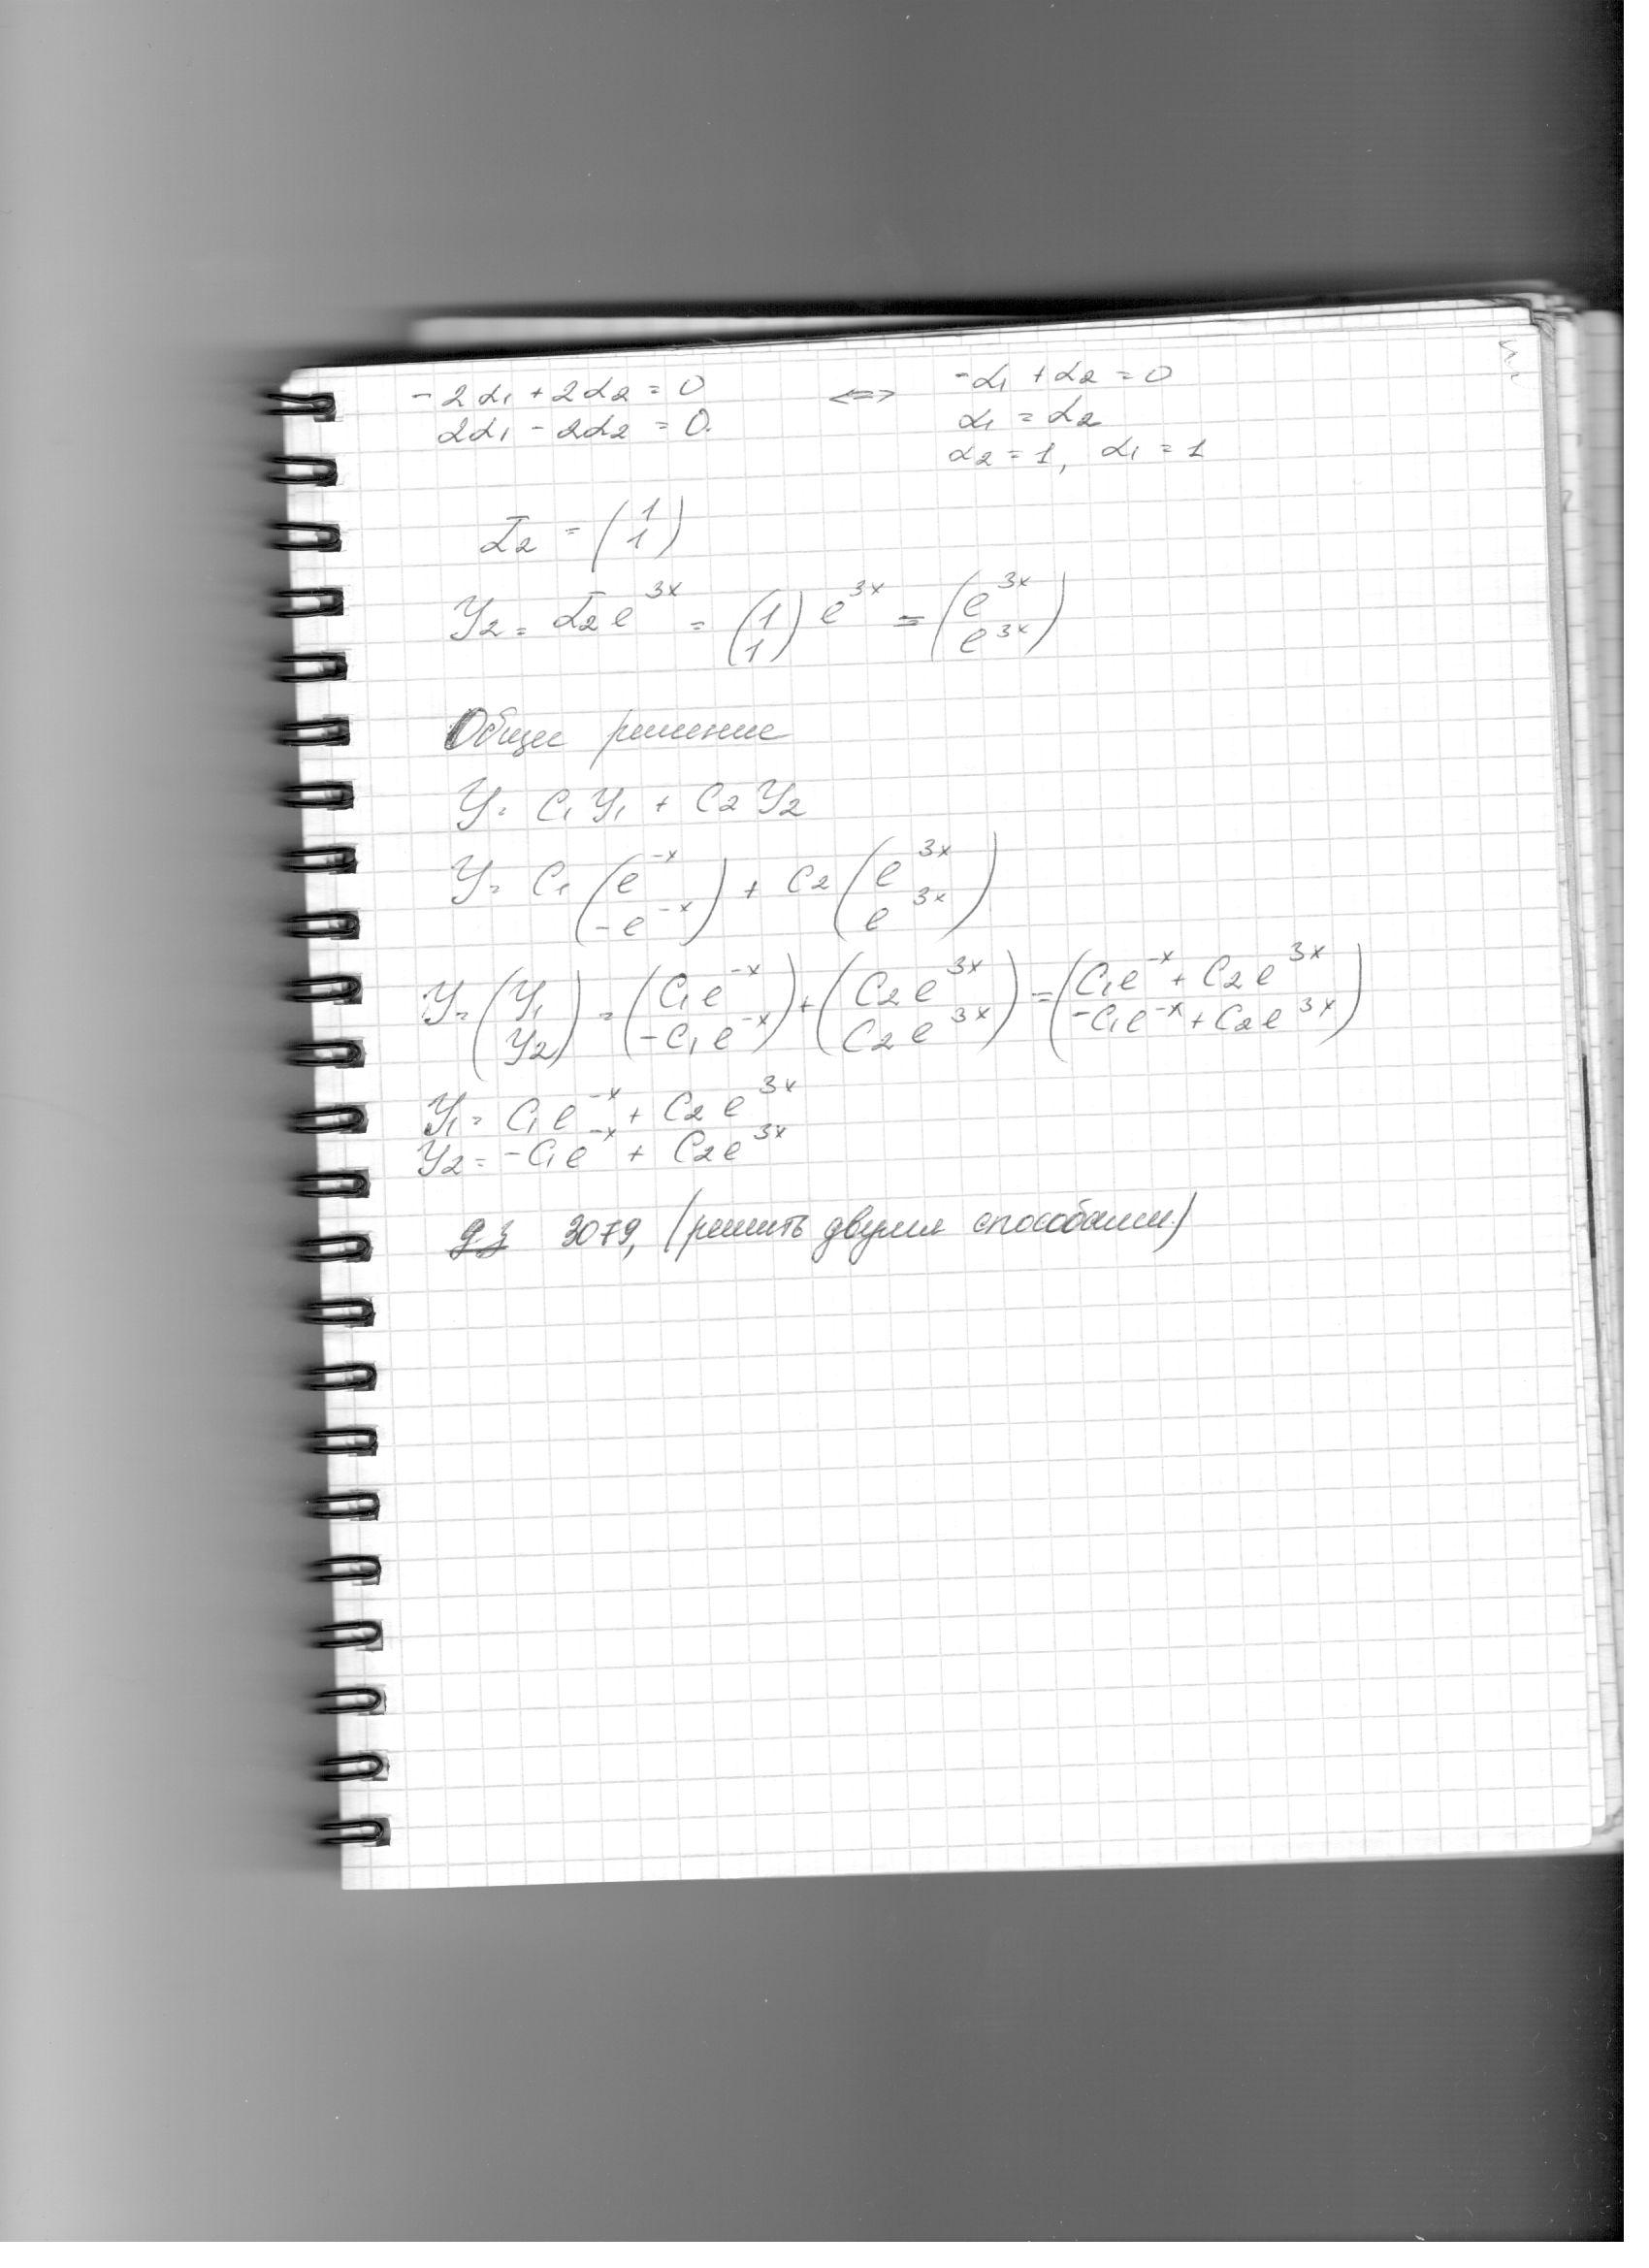 -2α₁ + 2α₂ = 0 <=> -α₁ + α₂ = 0
2α₁ - 2α₂ = 0. α₁ = α₂
α₂ = 1, α₁ = 1
ᾱ₂ = (1 1)
Y₂ = ᾱ₂ e^3x = (1 1) e^3x = (e^3x e^3x)
Общее решение
Y = C₁ Y₁ + C₂ Y₂
Y = C₁ (e^-x -e^-x) + C₂ (e^3x e^3x)
Y = (Y₁ Y₂) = (C₁e^-x -C₁e^-x) + (C₂e^3x C₂e^3x) = (C₁e^-x + C₂e^3x -C₁e^-x + C₂e^3x)
Y₁ = C₁e^-x + C₂e^3x
Y₂ = -C₁e^-x + C₂e^3x
д.з 3079, (решить двумя способами)